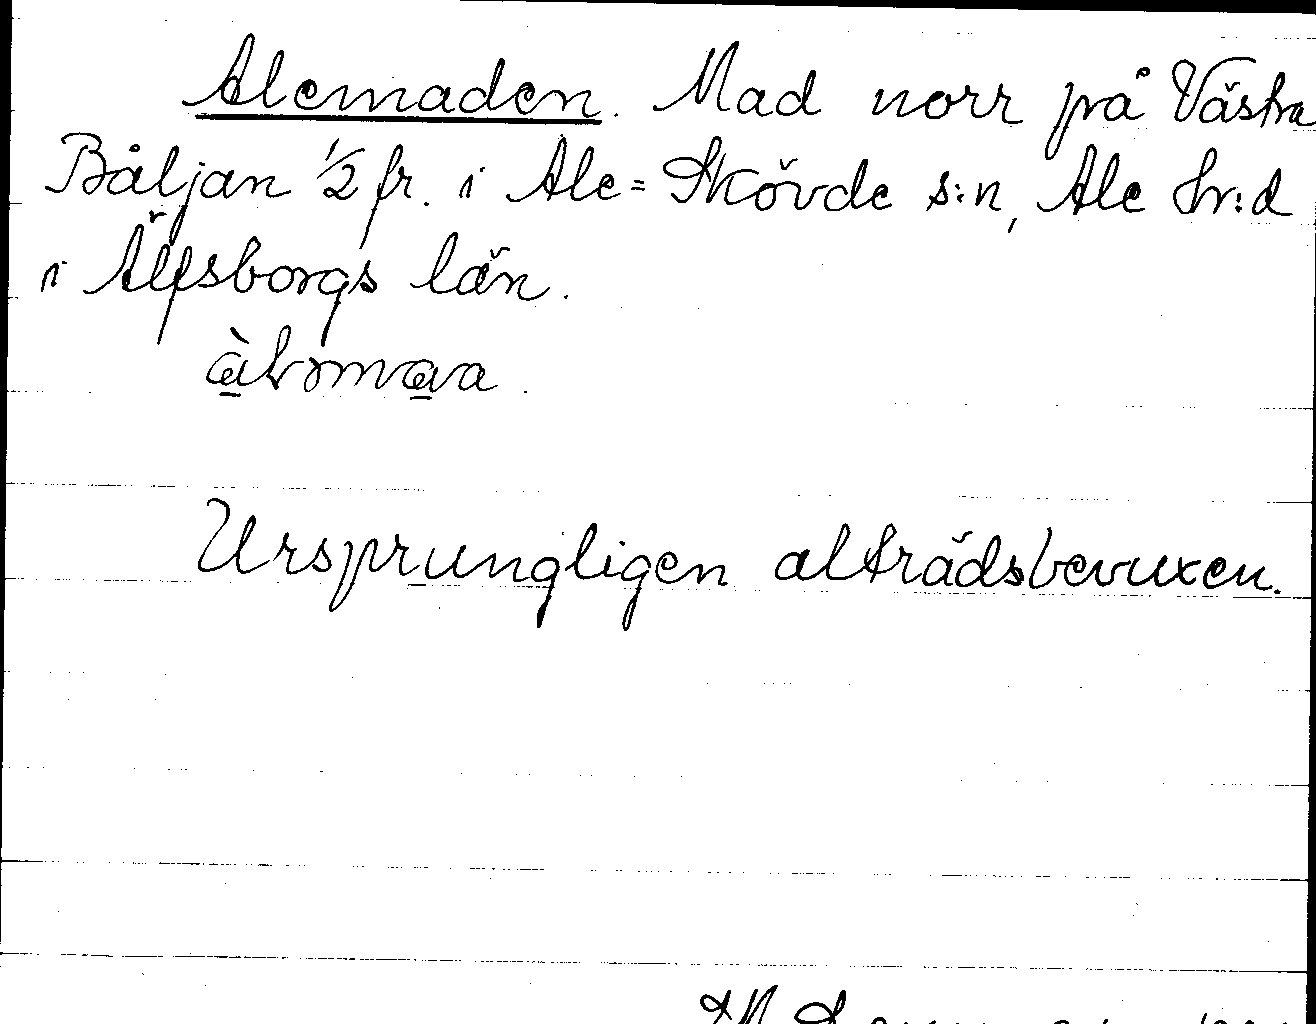 Alemaden. Mad norr på Västra
Båljan 1/2 fr. i Ale=Skövde s:n, Ale hr:d
i Älfsborgs län.
Ursprungligen alträdsbevuxen.